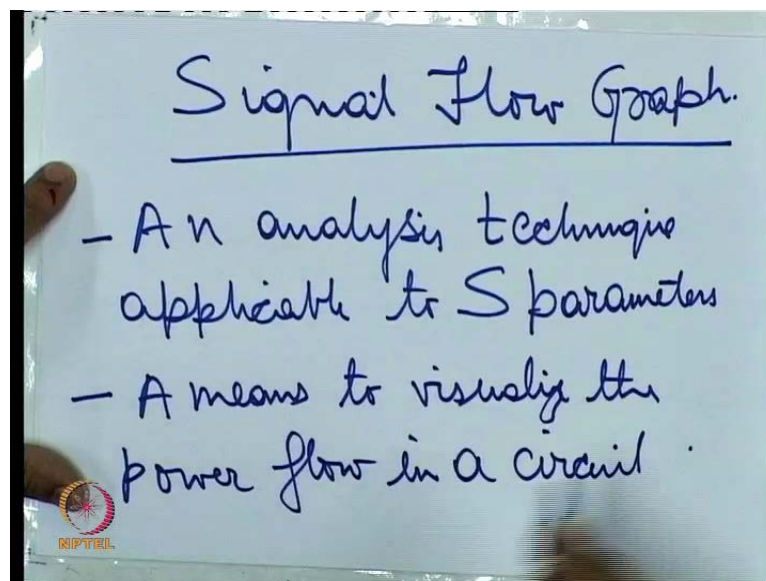 Signal Flow Graph.
- An analysis technique
applicable to S parameters
- A means to visualize the
power flow in a circuit
NPTEL